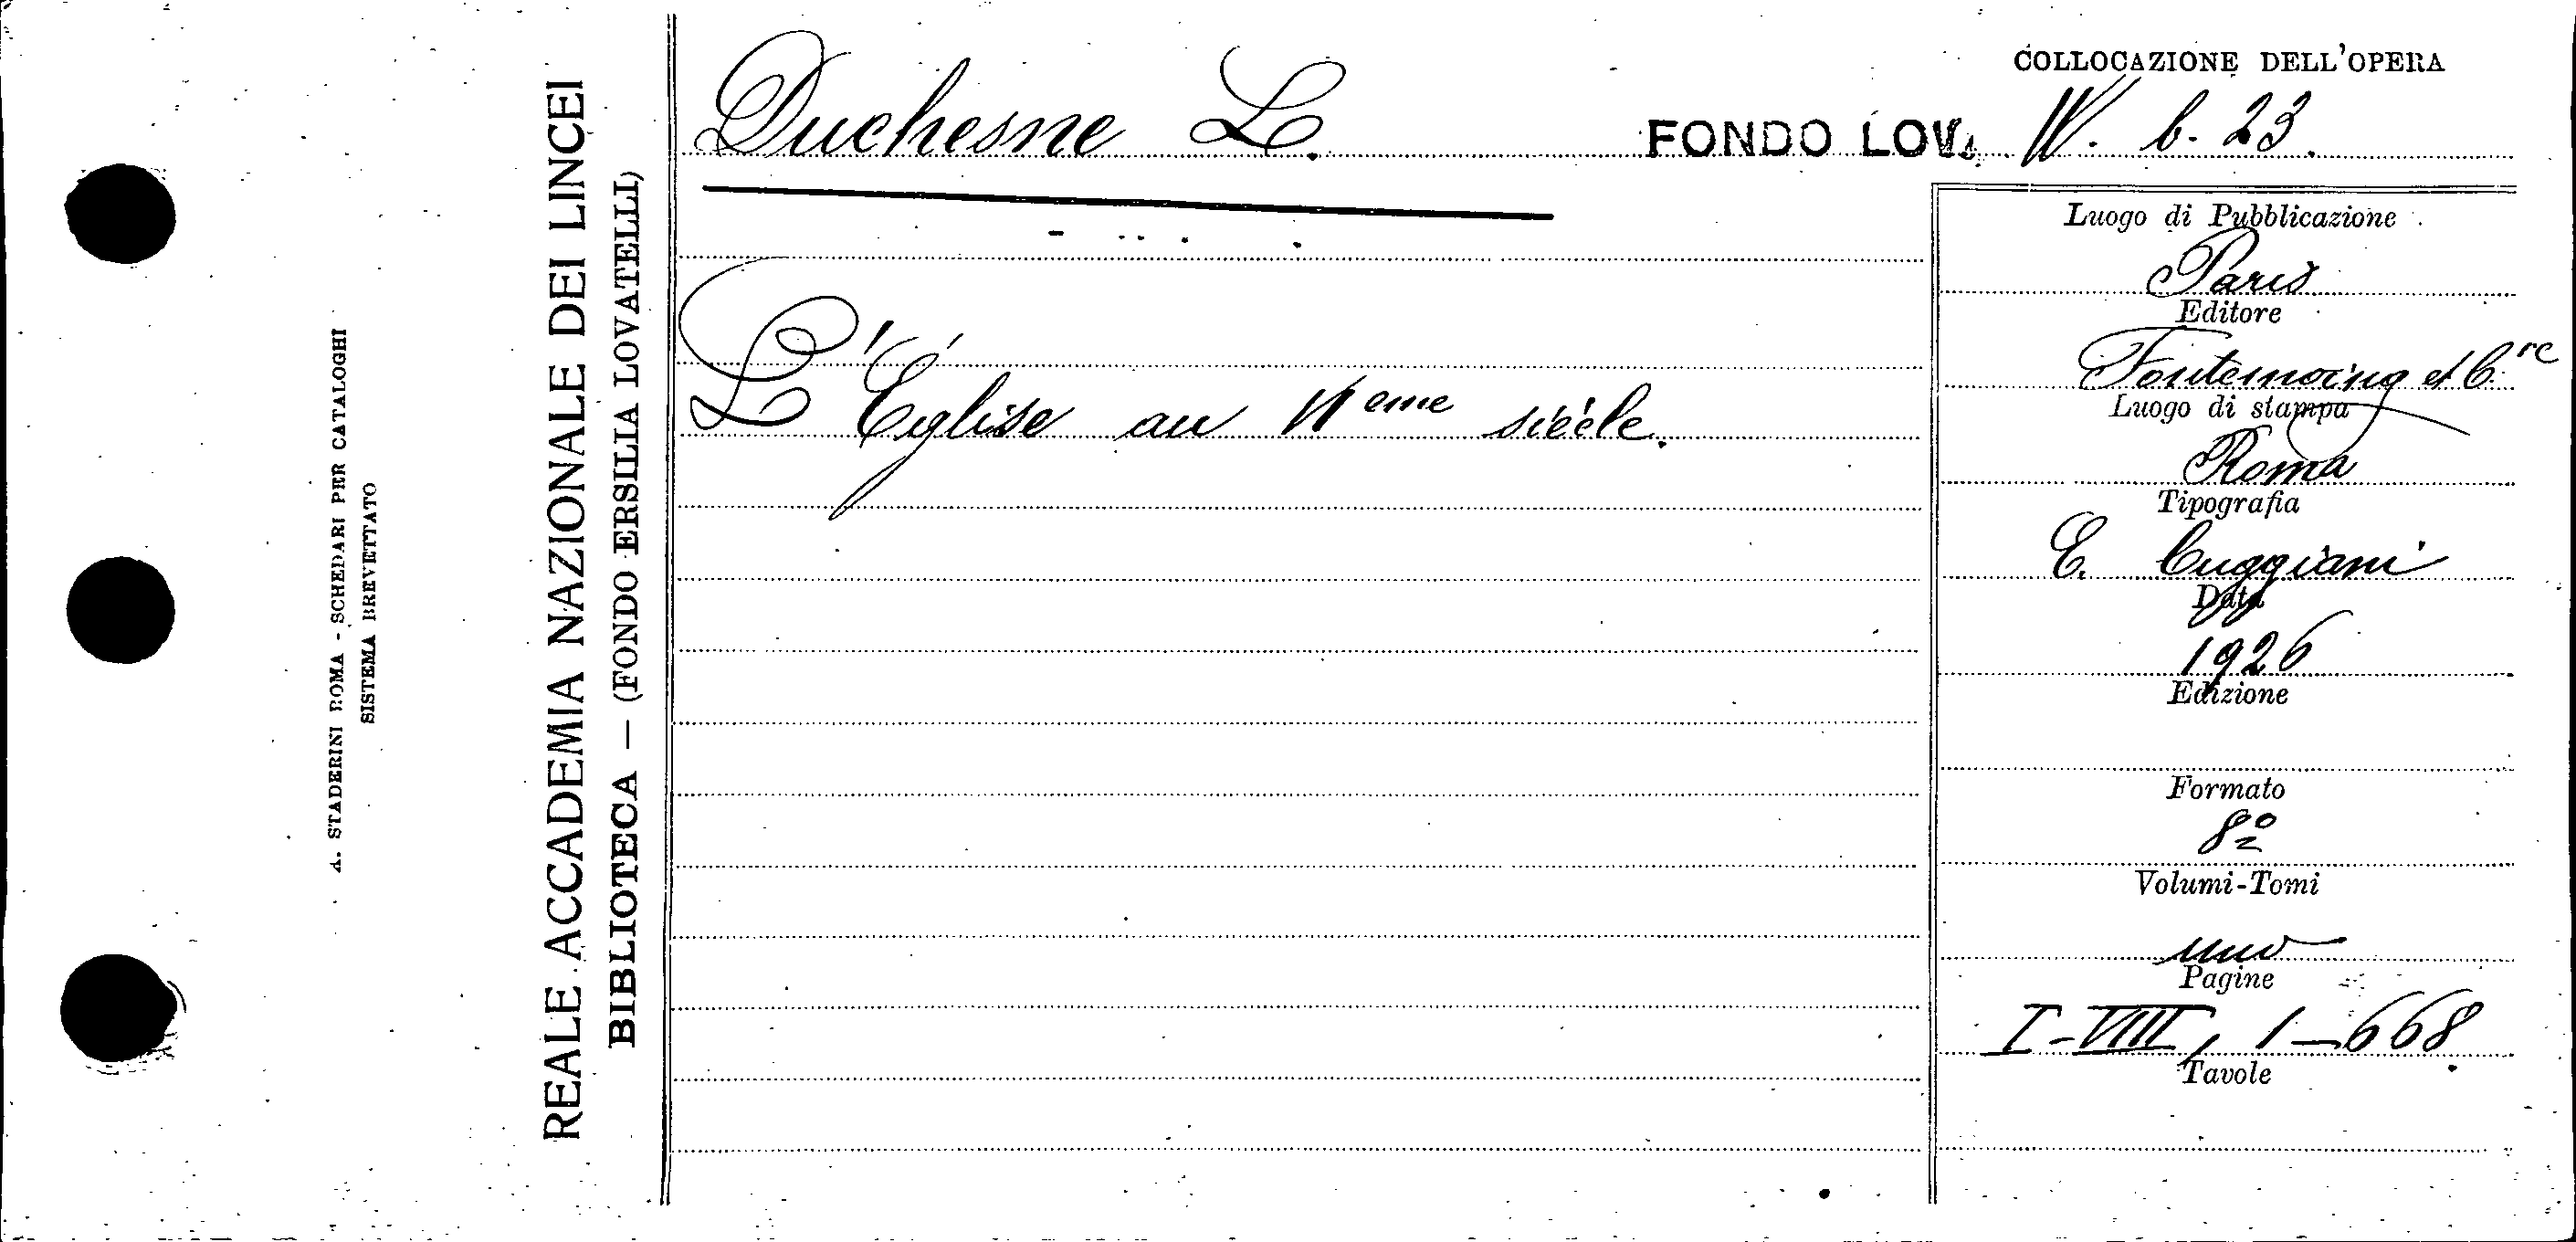 A. STADERINI ROMA - SCHEDARI PER CATALOGHI
SISTEMA BREVETTATO
REALE ACCADEMIA NAZIONALE DEI LINCEI
BIBLIOTECA — (FONDO ERSILIA LOVATELLI)
COLLOCAZIONE DELL'OPERA
Duchesne L. FONDO LOV. IV. b. 23.
L'Église au VIeme siècle.
Luogo di Pubblicazione
Paris
Editore
Fontemoing et C.ie
Luogo di stampa
Roma
Tipografia
E. Cuggiani
Data
1926
Edizione
Formato
8º
Volumi-Tomi
uno
Pagine
I-VIII, 1-668.
Tavole